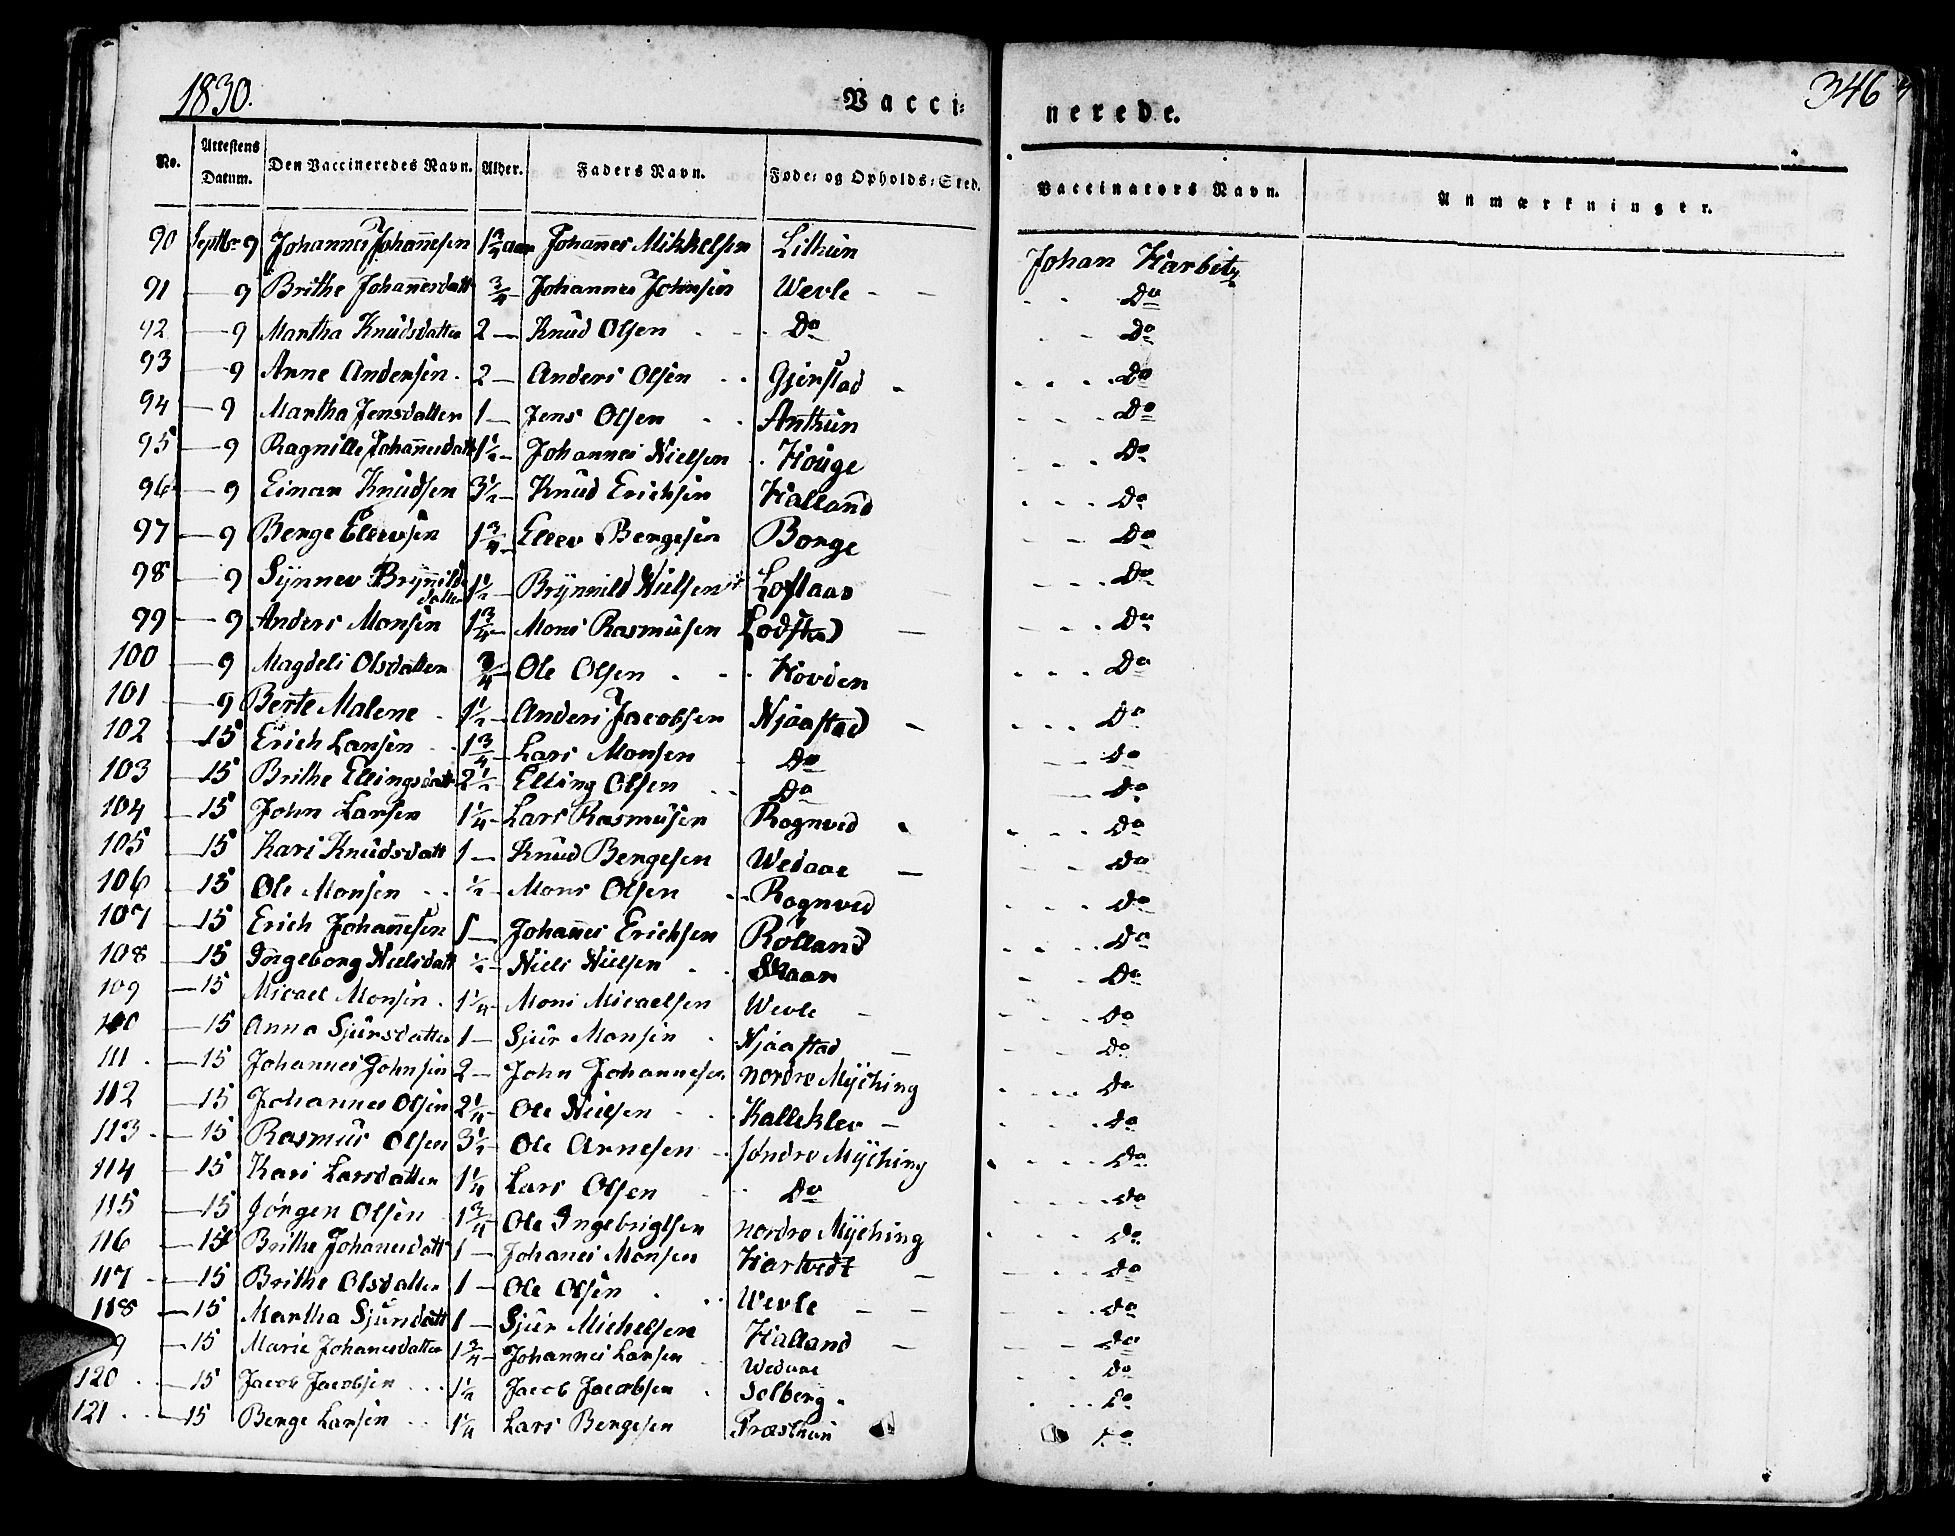 1830.
Vacci: nerede.
346
No. Attestens Datum. Den Vaccineredes Navn. Alder. Faders Navn. Føde- og Opholds-Sted. Vaccinators Navn. Anmærkninger.
90 Septbr 9 Johannes Johan̄esen 1 3/4 aar Johan̄es Mikkelsen Lithun Johan Harbitz
91 — 9 Brithe Johan̄esdatt 3/4 — Johannes Johnsen Wevle - - Do
92 — 9 Martha Knudsdatter 2 — Knud Olsen Do Do
93 — 9 Arne Andersen 2 — Anders Olsen Gjerstad Do
94 — 9 Martha Jensdatter 1 — Jens Olsen Anthun Do
95 — 9 Ragnille Johan̄esdatt 1 1/2 — Johannes Nielsen Houge Do
96 — 9 Einar Knudsen 3 1/2 — Knud Erichsen Halland Do
97 — 9 Berge Ellevsen 1 3/4 — Ellev Bergesen Borge Do
98 — 9 Synnev Brynnilds datter 1 1/2 — Brynnild Nielsen Loftaas Do
99 — 9 Anders Monsen 1 3/4 — Mons Rasmusen Lodstad — Do
100 — 9 Magdeli Olsdatter 3/4 — Ole Olsen Hovden Do
101 — 9 Berte Malene 1 1/2 — Anders Jacobsen Njaastad Do
102 — 15 Erich Larsen 1 3/4 — Lars Monsen Do Do
103 — 15 Brithe Ellingsdatt 2 1/2 — Elling Olsen Do Do
104 — 15 John Larsen 1 1/4 — Lars Rasmusen Rognved Do
105 — 15 Kari Knudsdatt 1 — Knud Bergesen Wedaae — Do
106 — 15 Ole Monsen 1/2 — Mons Olsen Rognved Do
107 — 15 Erich Johan̄esen 1 — Johan̄es Erichsen Rolland Do
108 — 15 Ingeborg Nielsdatt 1/2 — Niels Nielsen Skaar Do
109 — 15 Micael Monsen 1 1/4 — Mons Micaelsen Wevle Do
110 — 15 Anna Sjursdatter 1 — Sjur Monsen Njaastad — Do
111 — 15 Johannes Johnsen 2 — John Johannesen nordre Mÿching Do
112 — 15 Johannes Olsen 2 1/4 — Ole Nielsen Kalleklev — Do
113 — 15 Rasmus Olsen 3 1/2 — Ole Arnesen søndre Mÿching Do
114 — 15 Kari Larsdatter 1 1/4 — Lars Olsen Do Do
115 — 15 Jørgen Olsen 1 3/4 — Ole Ingebrigtsen nordre Mÿching Do
116 — 15 Brithe Johanesdatt 1 — Johanes Monsen Hartvedt — Do
117 — 15 Brithe Olsdatter 1 — Ole Olsen Wevle — — Do
118 — 15 Martha Sjursdatt 1 — Sjur Michelsen Halland — Do
9 — 15 Marie Johanesdatter 1 3/4 — Johannes Larsen Wedaae Do
120 — 15 Jacob Jacobsen 1 1/2 Jacob Jacobsen Solberg Do
121 — 15 Berge Larsen 1 1/4 Lars Bergesen Træsthun Do